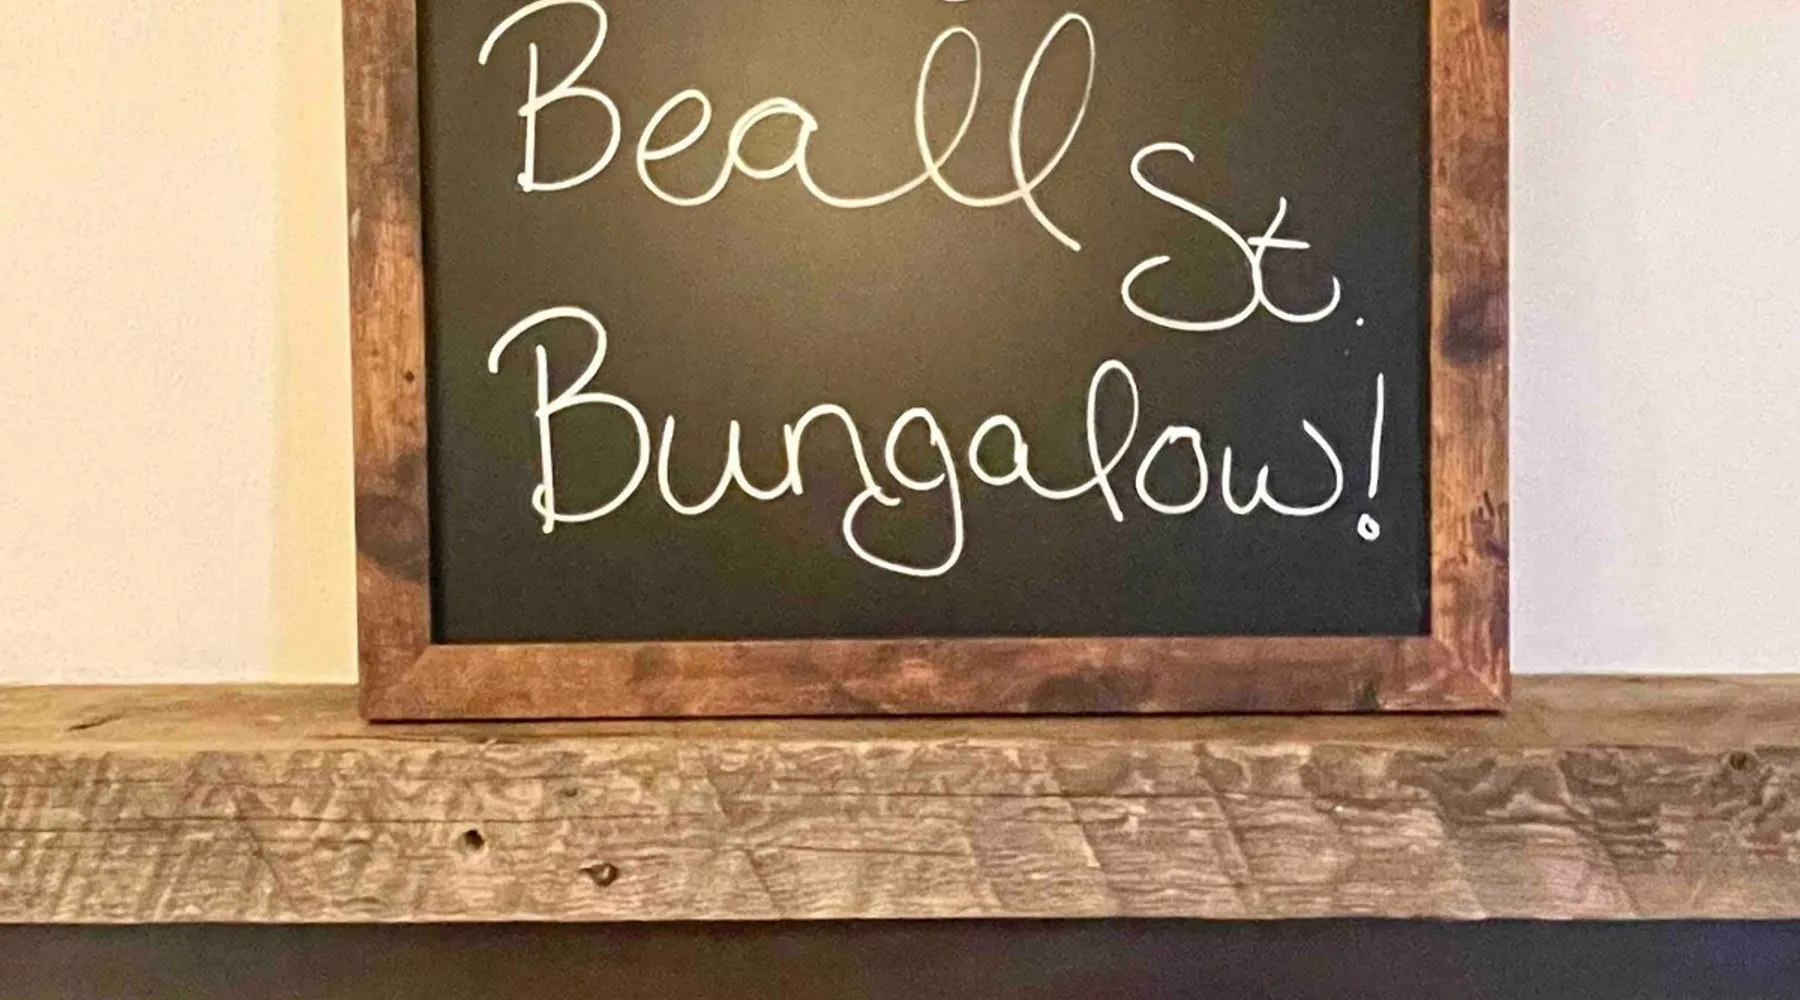 Beall St.
Bungalow!